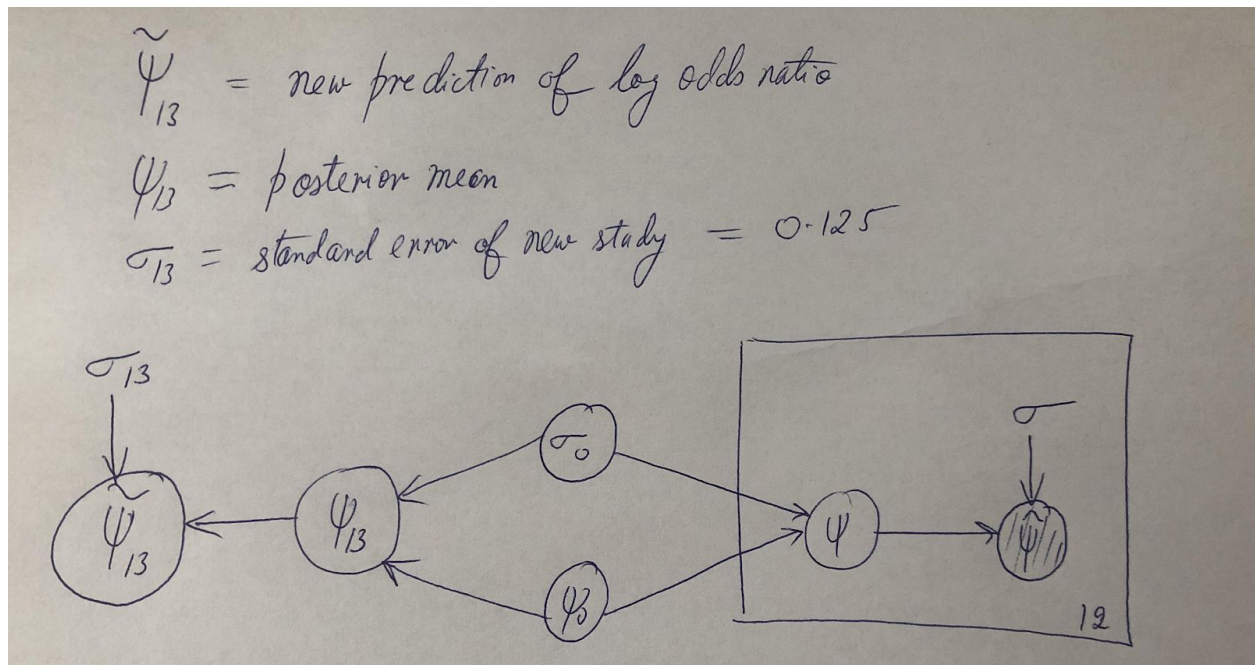 ψ̃₁₃ = new prediction of log odds ratio
ψ₁₃ = posterior mean
σ₁₃ = standard error of new study = 0.125
σ₁₃
σ₀
σ
ψ̃₁₃
ψ₁₃
ψ
ψ̃
12